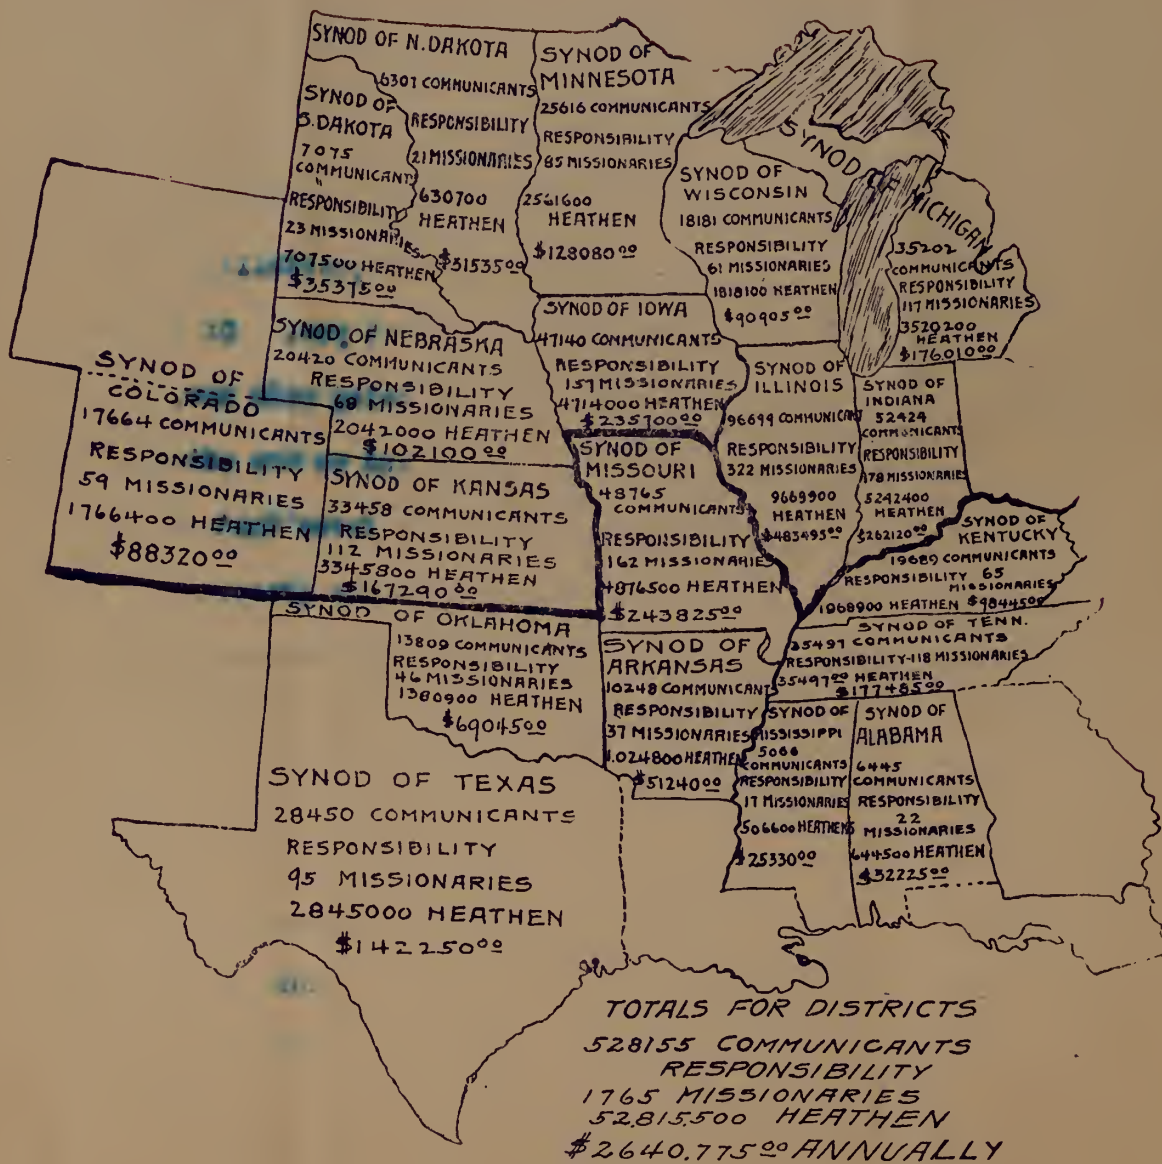 SYNOD OF N. DAKOTA
6307 COMMUNICANTS
RESPONSIBILITY
21 MISSIONARIES
630700
HEATHEN
$31535.00
SYNOD OF
S. DAKOTA
7075
COMMUNICANTS
RESPONSIBILITY
23 MISSIONARIES
707500 HEATHEN
$35375.00
SYNOD OF
MINNESOTA
25616 COMMUNICANTS
RESPONSIBILITY
85 MISSIONARIES
2561600
HEATHEN
$128080.00
SYNOD OF
WISCONSIN
18181 COMMUNICANTS
RESPONSIBILITY
61 MISSIONARIES
1818100 HEATHEN
$90905.00
SYNOD OF MICHIGAN
35202
COMMUNICANTS
RESPONSIBILITY
117 MISSIONARIES
3520200
HEATHEN
$176010.00
SYNOD OF NEBRASKA
20420 COMMUNICANTS
RESPONSIBILITY
68 MISSIONARIES
2042000 HEATHEN
$102100.00
SYNOD OF IOWA
47140 COMMUNICANTS
RESPONSIBILITY
157 MISSIONARIES
4714000 HEATHEN
$235700.00
SYNOD OF
ILLINOIS
96699 COMMUNICANT
RESPONSIBILITY
322 MISSIONARIES
9669900
HEATHEN
$483495.00
SYNOD OF
INDIANA
52424
COMMUNICANTS
RESPONSIBILITY
178 MISSIONARIES
5242400
HEATHEN
$262120.00
SYNOD OF
COLORADO
17664 COMMUNICANTS
RESPONSIBILITY
59 MISSIONARIES
1766400 HEATHEN
$88320.00
SYNOD OF KANSAS
33458 COMMUNICANTS
RESPONSIBILITY
112 MISSIONARIES
3345800 HEATHEN
$167290.00
SYNOD OF
MISSOURI
48765
COMMUNICANTS
RESPONSIBILITY
162 MISSIONARIES
4876500 HEATHEN
$243825.00
SYNOD OF
KENTUCKY
19689 COMMUNICANTS
RESPONSIBILITY 65
MISSIONARIES
1968900 HEATHEN $98445.00
SYNOD OF TENN.
35497 COMMUNICANTS
RESPONSIBILITY-118 MISSIONARIES
3549700 HEATHEN
$177485.00
SYNOD OF OKLAHOMA
13809 COMMUNICANTS
RESPONSIBILITY
46 MISSIONARIES
1380900 HEATHEN
$69045.00
SYNOD OF
ARKANSAS
10248 COMMUNICANTS
RESPONSIBILITY
37 MISSIONARIES
1.024800 HEATHEN
$51240.00
SYNOD OF
MISSISSIPPI
5066
COMMUNICANTS
RESPONSIBILITY
17 MISSIONARIES
506600 HEATHENS
$25330.00
SYNOD OF
ALABAMA
6445
COMMUNICANTS
RESPONSIBILITY
22
MISSIONARIES
644500 HEATHEN
$32225.00
SYNOD OF TEXAS
28450 COMMUNICANTS
RESPONSIBILITY
95 MISSIONARIES
2845000 HEATHEN
$142250.00
TOTALS FOR DISTRICTS
528155 COMMUNICANTS
RESPONSIBILITY
1765 MISSIONARIES
52.815.500 HEATHEN
$2640.775.00 ANNUALLY